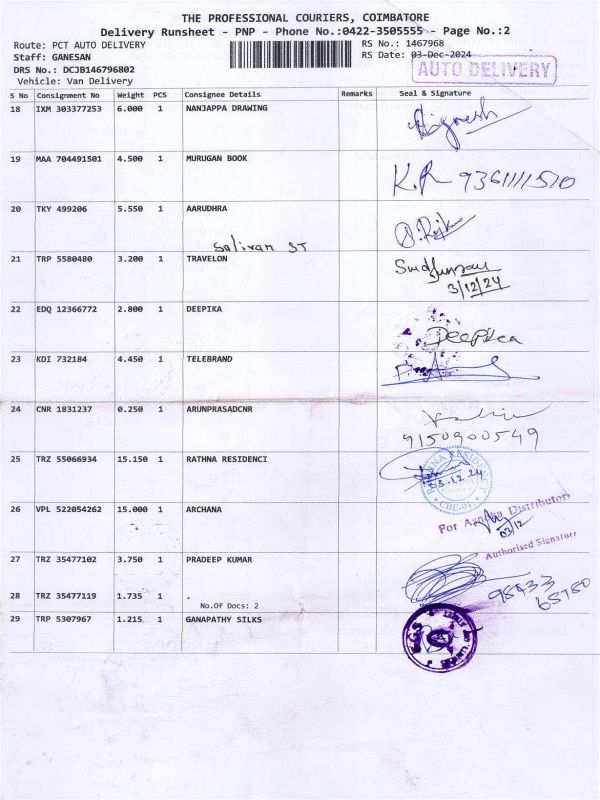 THE PROFESSIONAL COURIERS, COIMBATORE
Delivery Runsheet - PNP - Phone No.:0422-3505555 - Page No.:2
Route: PCT AUTO DELIVERY RS No.: 1467968
Staff: GANESAN RS Date: 03-Dec-2024
DRS No.: DCJB146796802 AUTO DELIVERY
Vehicle: Van Delivery
S No Consignment No Weight PCS Consignee Details Remarks Seal & Signature
18 IXM 303377253 6.000 1 NANJAPPA DRAWING
19 MAA 704491501 4.500 1 MURUGAN BOOK
K.R 9361111510
20 TKY 499206 5.550 1 AARUDHRA
Salivan ST
21 TRP 5580480 3.200 1 TRAVELON
3/12/24
22 EDQ 12366772 2.800 1 DEEPIKA
Deepika
23 KDI 732184 4.450 1 TELEBRAND
24 CNR 1831237 0.250 1 ARUNPRASADCNR
9150900549
25 TRZ 55066934 15.150 1 RATHNA RESIDENCI
26 VPL 522054262 15.000 1 ARCHANA
Distributors
03/12
Authorised Signature
27 TRZ 35477102 3.750 1 PRADEEP KUMAR
98433
65780
28 TRZ 35477119 1.735 1 .
No.Of Docs: 2
29 TRP 5307967 1.215 1 GANAPATHY SILKS